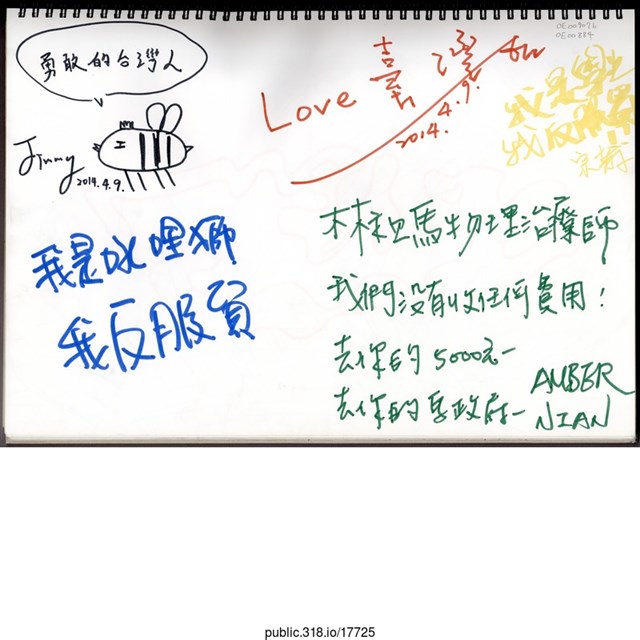 勇敢的台灣人
Jimmy
2014.4.9.
Love 臺灣
2014.4.9.
OE00884
我是
我反服貿
我是咪哩獅
我反服貿
物理治療師
我們沒有收任何費用！
去你的5000元—
去你的馬政府—
AMBER
NIAN
public.318.io/17725